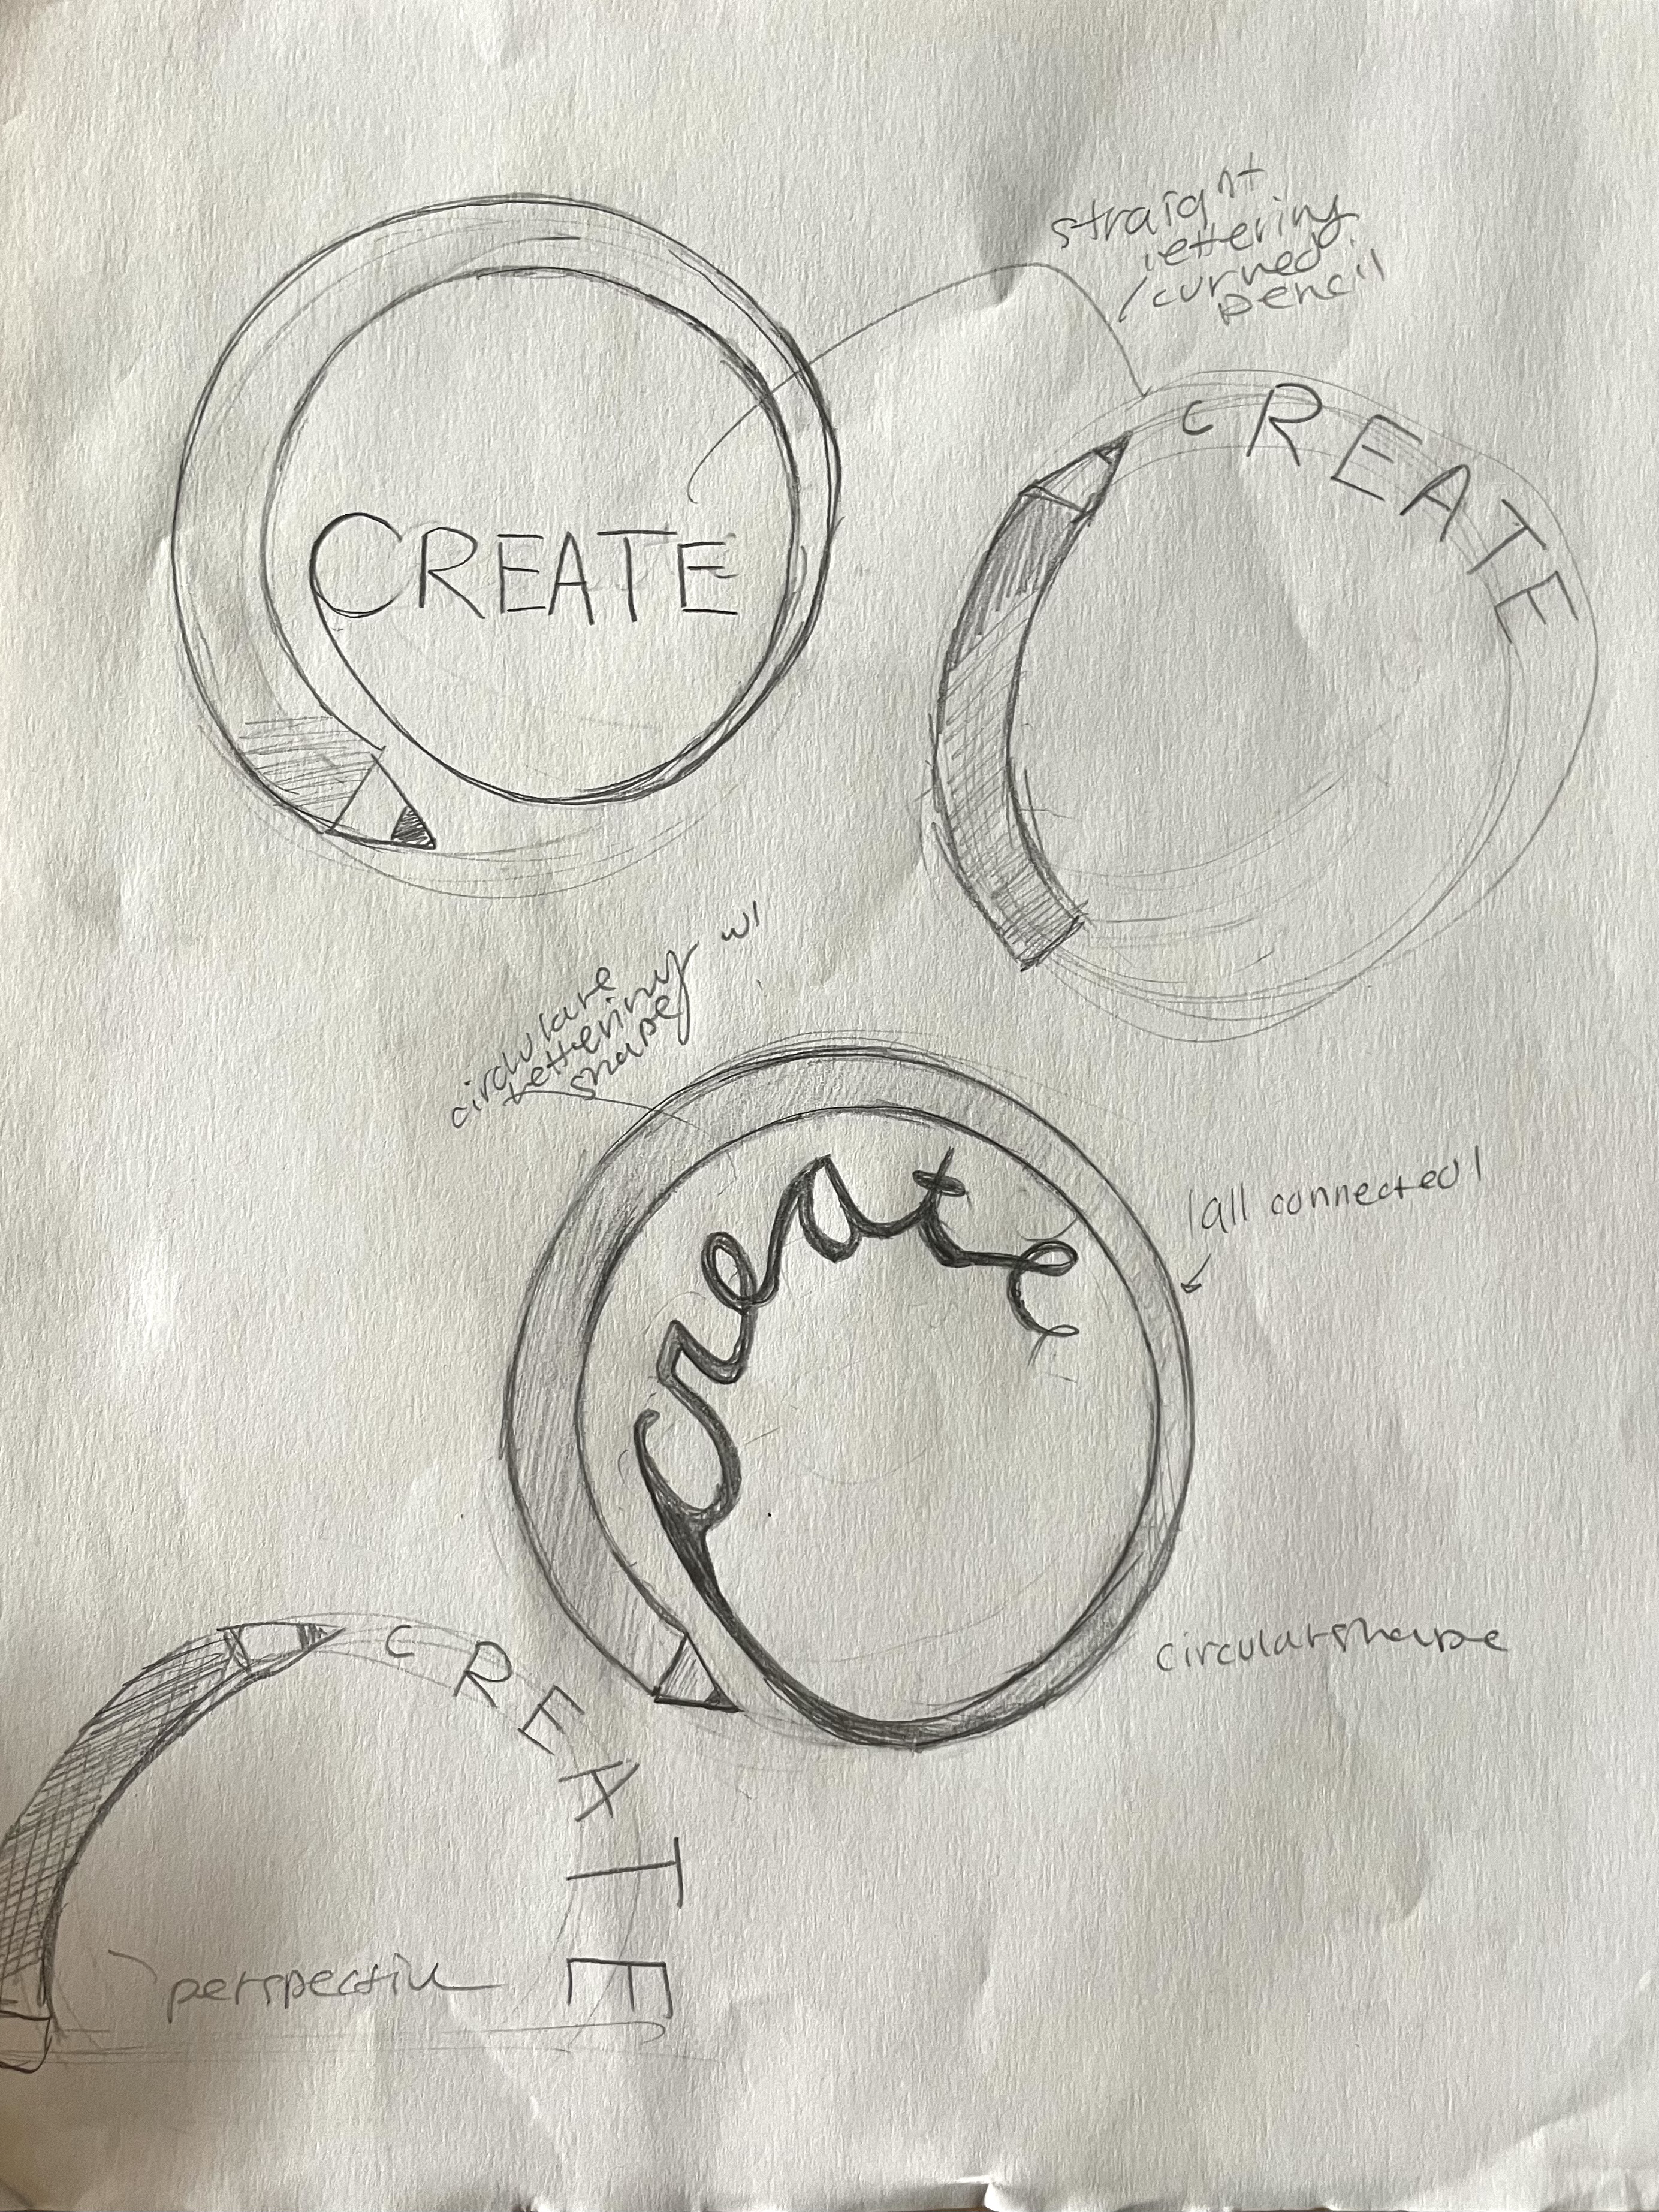 straight
lettering
/curved
pencil
CREATE
CREATE
circulare
lettering w/
shape
create
|all connected|
circular shape
CREATE
perspective